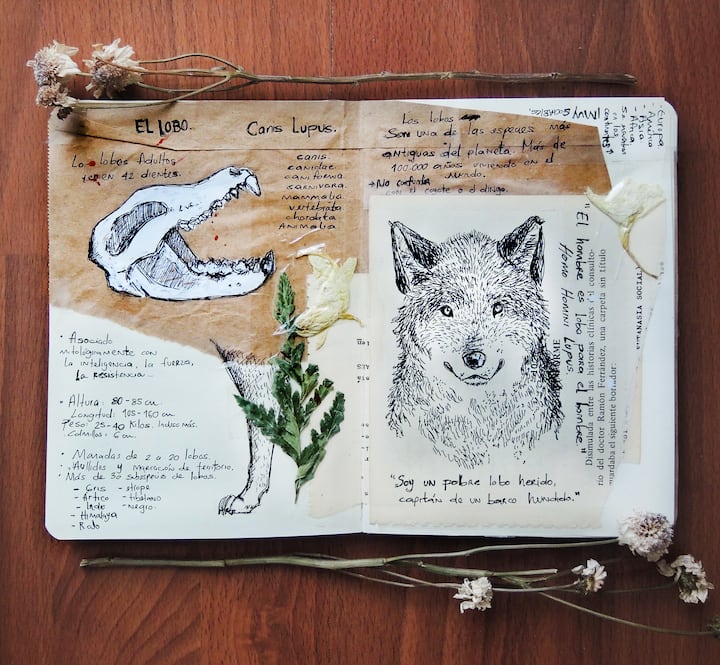 EL LOBO.
Canis Lupus.
Los lobos Adultos
tienen 42 dientes.
canis.
canidae
caniforma
carnivora.
mammalia
vertebrata
chordata
Animalia
· Asociado
mitologicamente con
la inteligencia, la fuerza,
la resistencia
· Altura: 80-85 cm.
Longitud: 105-160 cm
Peso: 25-40 Kilos. Incluso más.
Colmillos: 6 cm.
· Manadas de 2 a 20 lobos.
· Aullidos y marcación de territorio.
· Más de 30 subespecies de lobos.
- Gris
- Ártico
- Indo
- Himalaya
- Rojo
- etiope
- tibetano
- Negro.
Los lobos
Son una de las especies más
antiguas del planeta. Más de
100.000 años viviendo en el
mundo.
→ No confundir
con el coyote o el dingo.
¡Muy Sociables!
- Europa
- América
- Asia
- África
"El hombre es lobo para el hombre"
Homo Homini Lupus.
Disimulada entre las historias clínicas
río del doctor Ramón Fernández, una carpeta sin título
guardaba el siguiente borrador:
"Soy un pobre lobo herido,
capitán de un barco hundido."